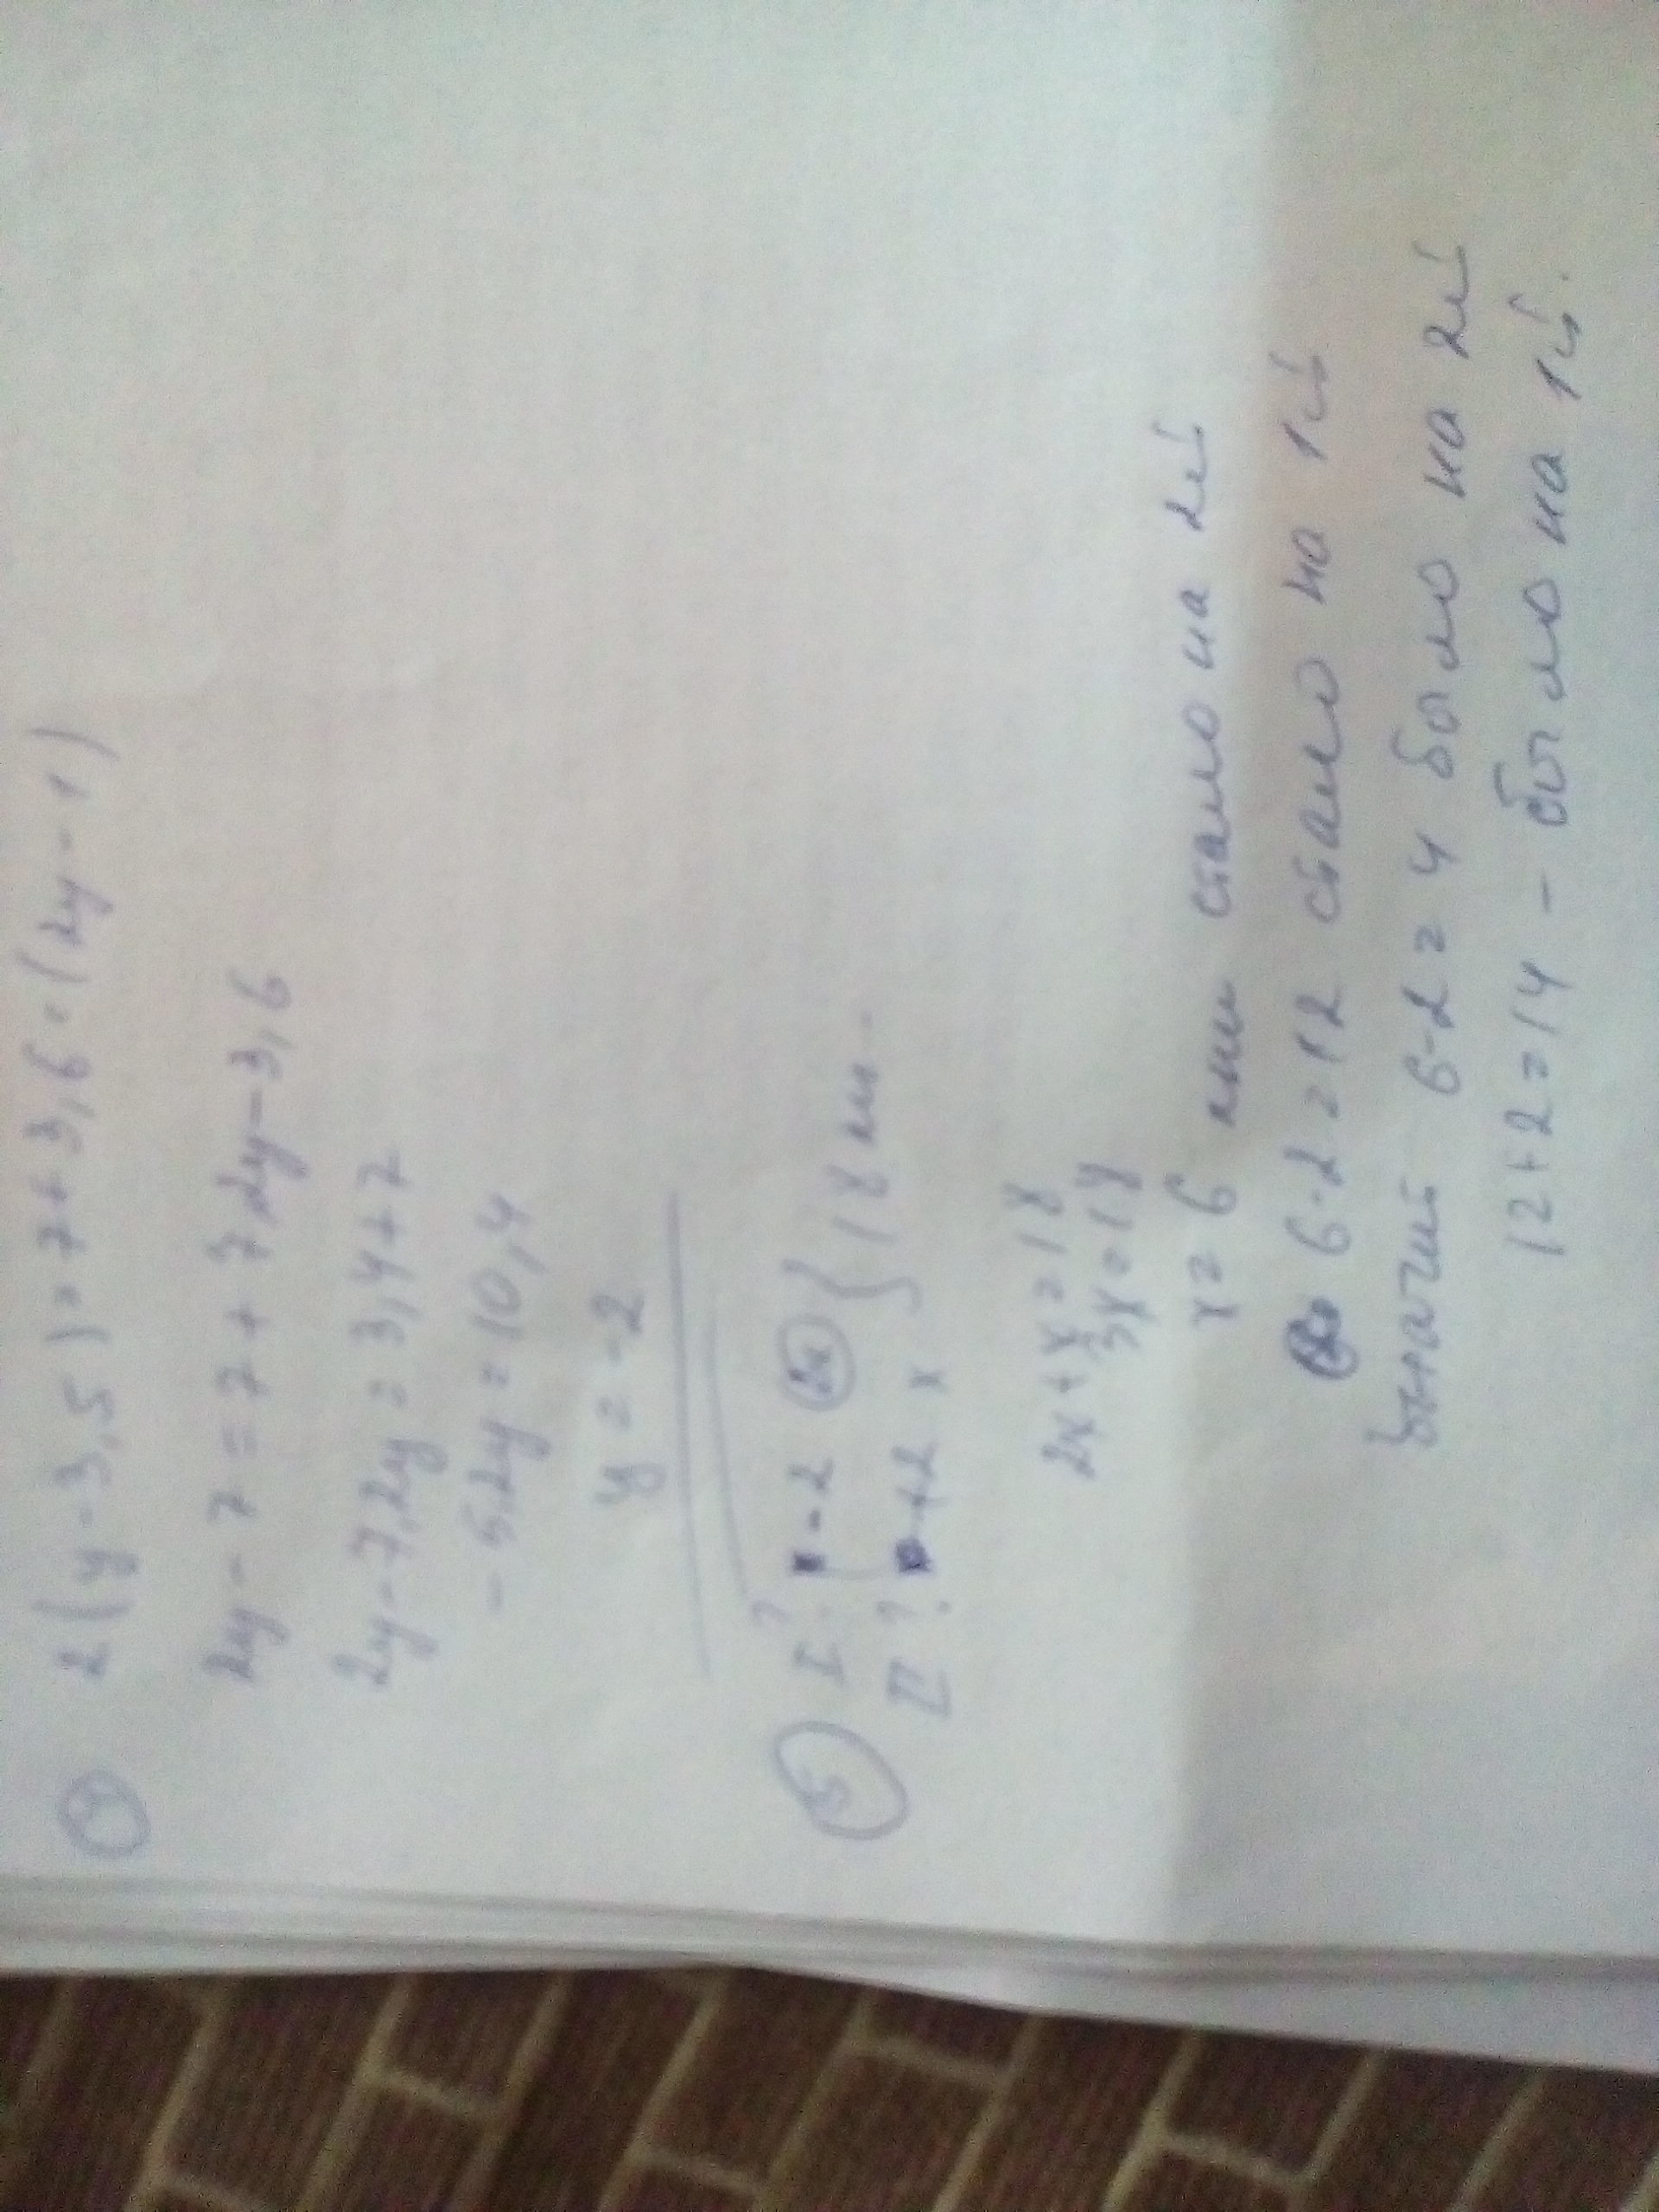 ④ 2(y-3,5)=7+3,6·(2y-1)
2y-7=7+7,2y-3,6
2y-7,2y=3,4+7
-5,2y=10,4
y=-2
⑤ I ? -2 2x
II ? +2 x } 18 кни
2x+x=18
3x=18
x=6 кни стало на 2й
6·2=12 стало на 1й
Значит 6-2=4 было на 2й
12+2=14 - было на 1й.